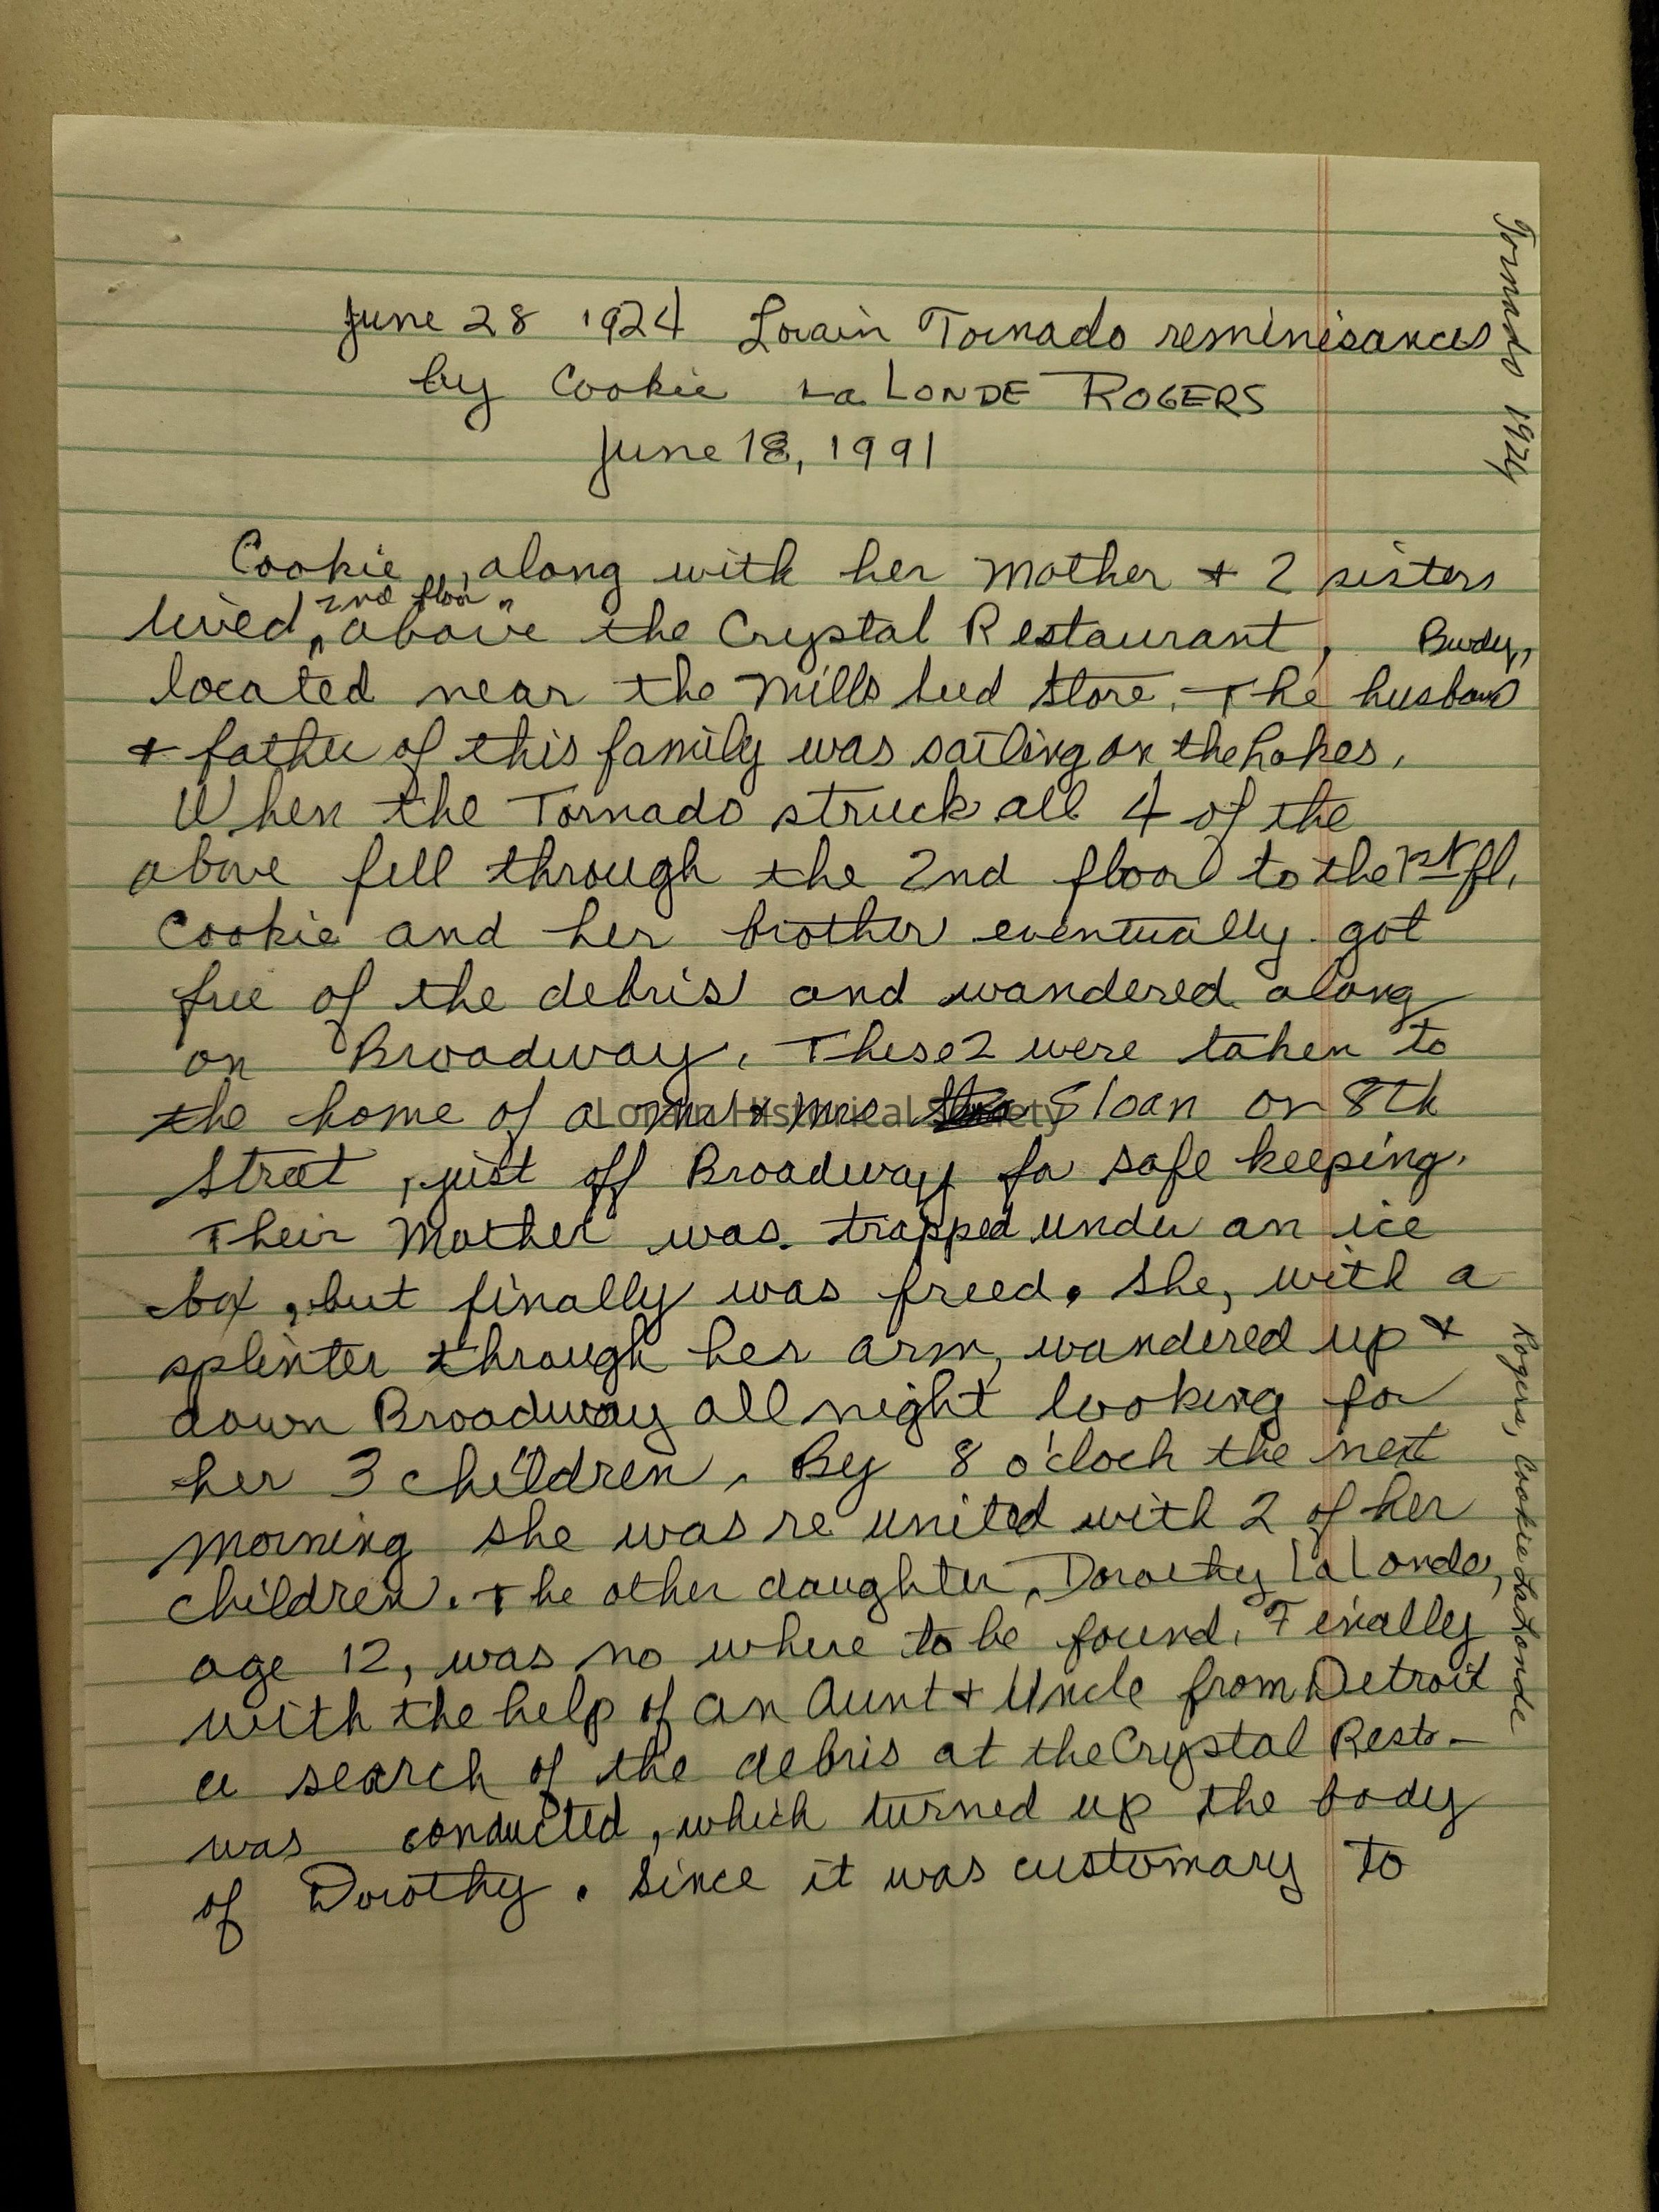 June 28 1924 Lorain Tornado reminisances
by Cookie La LONDE ROGERS
June 18, 1991
Tornado 1924
Cookie, along with her Mother + 2 sisters
lived, "2nd floor" above the Crystal Restaurant,
located near the Mills seed store. The husband
+ father of this family was sailing on the Lakes.
When the Tornado struck all 4 of the
above fell through the 2nd floor to the 1st fl.
Cookie and her brother eventually got
free of the debris and wandered along
on Broadway. These 2 were taken to
the home of a Mr + Mrs Sloan on 8th
Street, just off Broadway for safe keeping.
Their Mother was trapped under an ice
box, but finally was freed. She, with a
splinter through her arm, wandered up +
down Broadway all night looking for
her 3 children. By 8 o'clock the next
morning she was re united with 2 of her
children. The other daughter, Dorothy LaLonde,
age 12, was no where to be found. Finally
with the help of an Aunt + Uncle from Detroit
a search of the debris at the Crystal Rest.
was conducted, which turned up the body
of Dorothy. Since it was customary to
Rogers, Cookie LaLonde
Lorain Historical Society